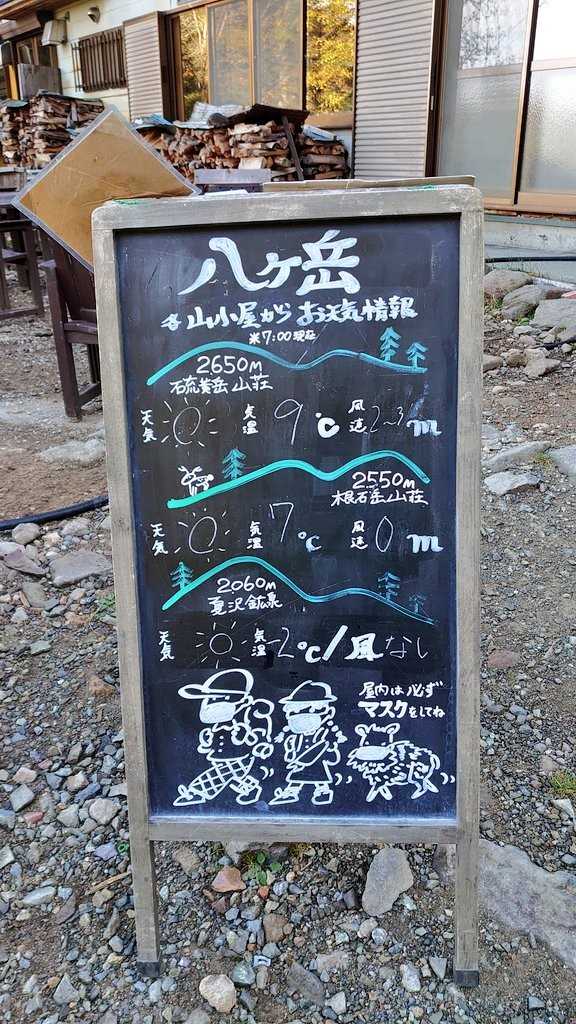 八ヶ岳
各山小屋から お天気情報
※7:00現在
2650m
硫黄岳山荘
天気 気温 9℃ 風速 2~3m
2550m
根石岳山荘
天気 気温 7℃ 風速 0m
2060m
夏沢鉱泉
天気 気温 -2℃/風なし
屋内は必ず
マスクをしてね